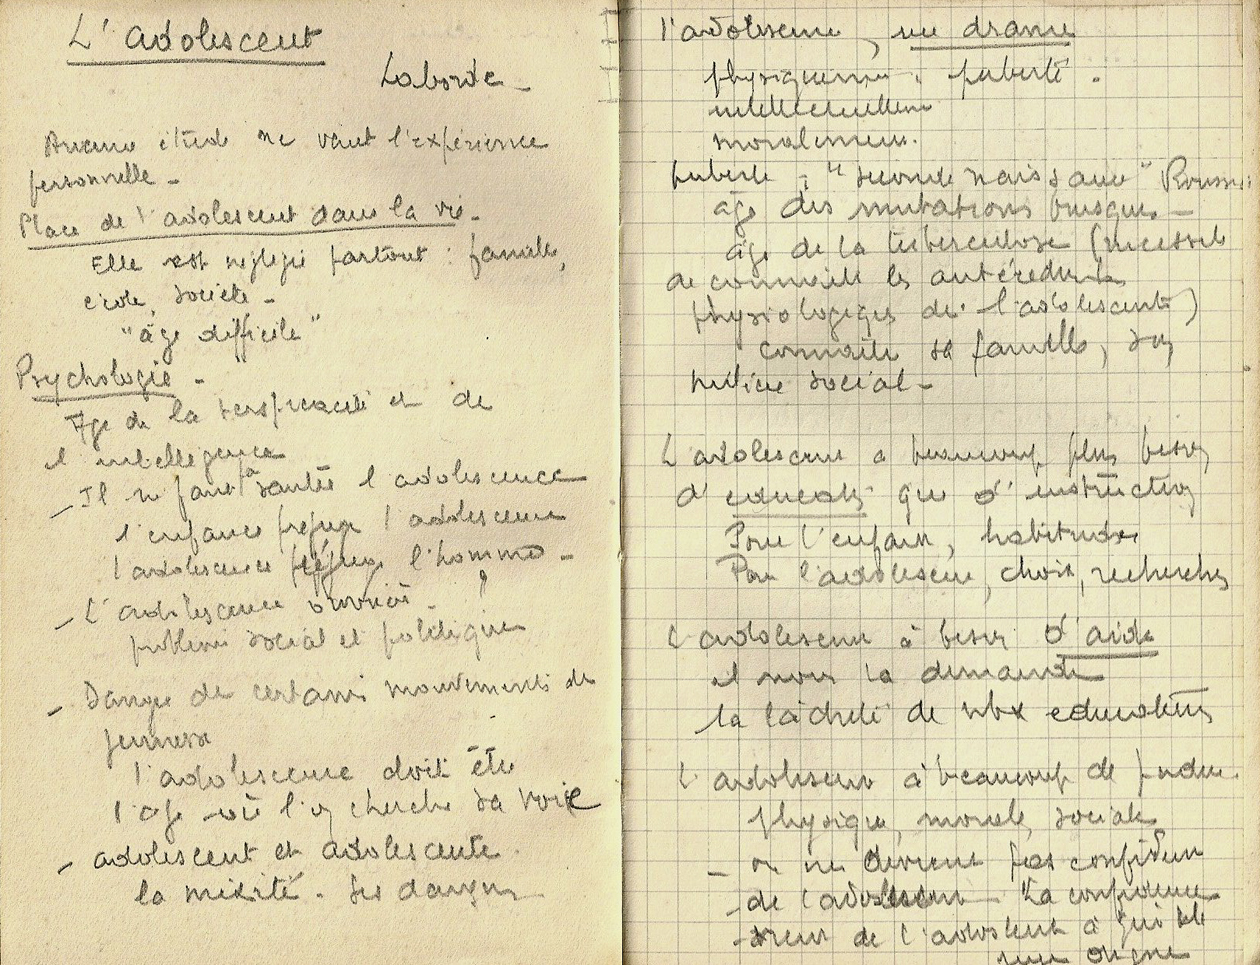 L'adolescent
Laborde
Aucune étude ne vaut l'expérience
personnelle -
Place de l'adolescent dans la vie -
Elle est négligée partout : famille,
école, société -
"âge difficile"
Psychologie -
Age de la perspicacité et de
l'intelligence
- Il ne faut pas sauter l'adolescence
l'enfance préfigure l'adolescence
l'adolescence préfigure l'homme -
- L'adolescence ouvrière - ?
problème social et politique
- Danger de certains mouvements de
jeunesse
l'adolescence doit être
l'âge où l'on cherche sa voie
- adolescent et adolescente
la mixité - Ses dangers
l'adolescence, un drame
physiquement : puberté .
intellectuellement
moralement.
puberté : "seconde naissance" Rousseau
âge des mutations brusques -
âge de la tuberculose (nécessité
de connaître les antécédents
physiologiques de l'adolescente)
connaître sa famille, son
milieu social -
L'adolescence a beaucoup plus besoin
d'éducation que d'instruction
Pour l'enfant, habitudes
Pour l'adolescent, choix, recherches
L'adolescence a besoin d'aide
et nous la demande
la lâcheté de nbx éducateurs
L'adolescent a beaucoup de pudeur
physique, morale, sociale
- on ne devient pas confident
- de l'adolescent - La confidence
- vient de l'adolescent à qui elle